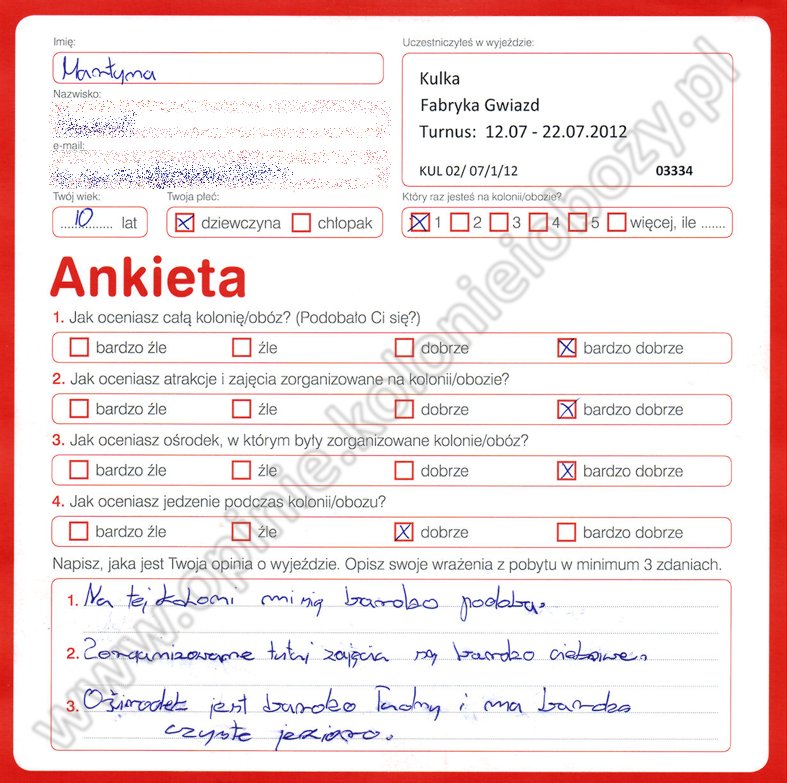 Imię:
Martyna
Uczestniczyłeś w wyjeździe:
Kulka
Fabryka Gwiazd
Turnus: 12.07 - 22.07.2012
KUL 02/ 07/1/12 03334
Nazwisko:
e-mail:
Twój wiek:
10 lat
Twoja płeć:
dziewczyna chłopak
Który raz jesteś na kolonii/obozie?
1 2 3 4 5 więcej, ile .......
Ankieta
1. Jak oceniasz całą kolonię/obóz? (Podobało Ci się?)
bardzo źle źle dobrze bardzo dobrze
2. Jak oceniasz atrakcje i zajęcia zorganizowane na kolonii/obozie?
bardzo źle źle dobrze bardzo dobrze
3. Jak oceniasz ośrodek, w którym były zorganizowane kolonie/obóz?
bardzo źle źle dobrze bardzo dobrze
4. Jak oceniasz jedzenie podczas kolonii/obozu?
bardzo źle źle dobrze bardzo dobrze
Napisz, jaka jest Twoja opinia o wyjeździe. Opisz swoje wrażenia z pobytu w minimum 3 zdaniach.
1. Na tej koloni mi się bardzo podoba.
2. Zorganizowane tutaj zajęcia są bardzo ciekawe.
3. Ośrodek jest bardzo ładny i ma bardzo
czyste jezioro.
www.opinie.kolonieiobozy.pl